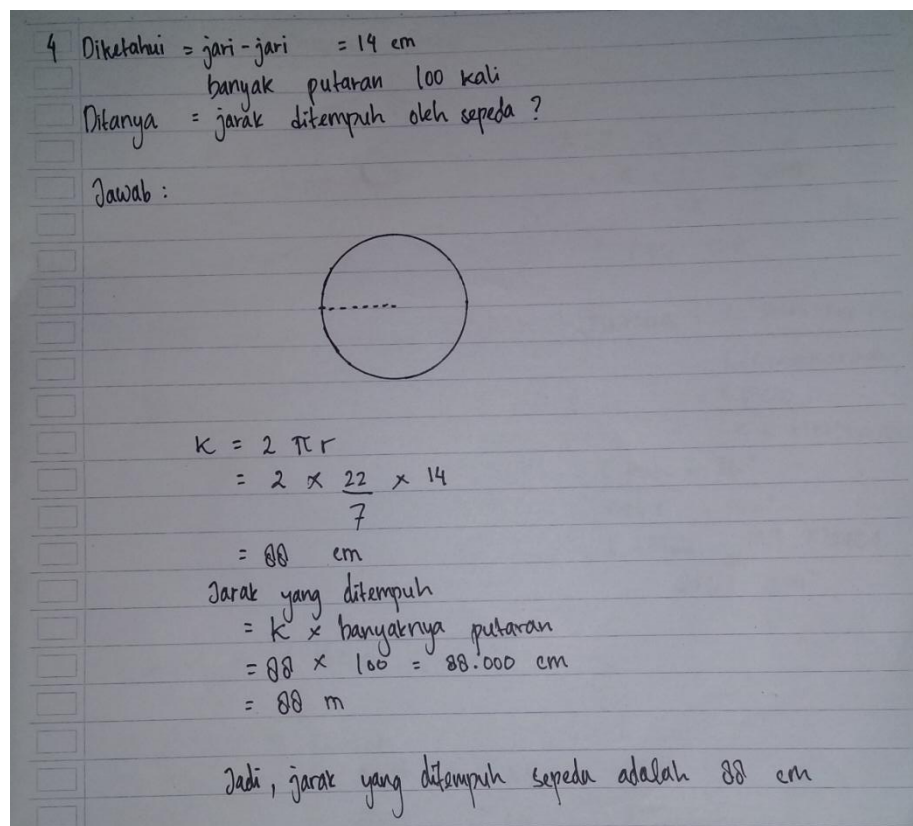 4 Diketahui = jari-jari = 14 cm
banyak putaran 100 kali
Ditanya = jarak ditempuh oleh sepeda ?
Jawab :
K = 2 π r
= 2 × 22/7 × 14
= 88 cm
Jarak yang ditempuh
= K × banyaknya putaran
= 88 × 100 = 88.000 cm
= 88 m
Jadi, jarak yang ditempuh sepeda adalah 88 cm